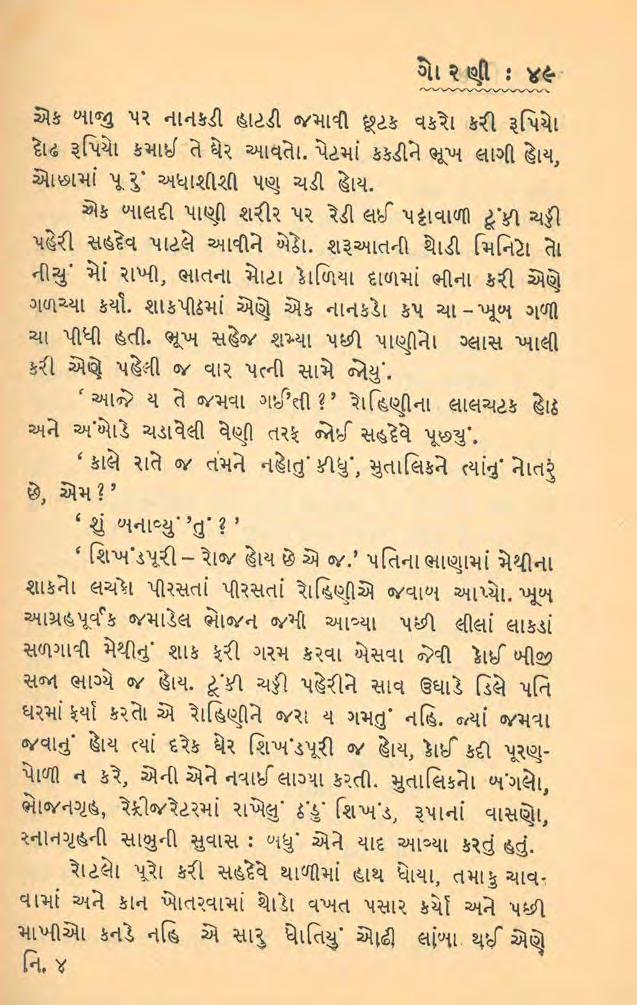 ગોરણી : ૪૯
એક બાજુ પર નાનકડી હાટડી જમાવી છૂટક વકરો કરી રૂપિયો
દોઢ રૂપિયો કમાઈ તે ઘેર આવતો. પેટમાં કકડીને ભૂખ લાગી હોય,
ઓછામાં પૂરું અધાશીશી પણ ચડી હોય.
એક બાલદી પાણી શરીર પર રેડી લઈ પટ્ટાવાળી ટૂંકી ચડ્ડી
પહેરી સહદેવ પાટલે આવીને બેઠો. શરૂઆતની થોડી મિનિટો તો
નીચું મોં રાખી, ભાતના મોટા કોળિયા દાળમાં ભીના કરી એણે
ગળચ્યા કર્યાં. શાકપીઠમાં એણે એક નાનકડો કપ ચા – ખૂબ ગળી
ચા પીધી હતી. ભૂખ સહેજ શમ્યા પછી પાણીનો ગ્લાસ ખાલી
કરી એણે પહેલી જ વાર પત્ની સામે જોયું.
‘ આજે ય તે જમવા ગઈ’તી ? ’ રોહિણીના લાલચટક હોઠ
અને અંબોડે ચડાવેલી વેણી તરફ જોઈ સહદેવે પૂછ્યું.
‘ કાલે રાતે જ તમને નહોતું કીધું, મુતાલિકને ત્યાંનું નોતરું
છે, એમ ? ’
‘ શું બનાવ્યું ’તું ? ’
‘ શિખંડપૂરી – રોજ હોય છે એ જ.’ પતિના ભાણામાં મેથીના
શાકનો લચકો પીરસતાં પીરસતાં રોહિણીએ જવાબ આપ્યો. ખૂબ
આગ્રહપૂર્વક જમાડેલ ભોજન જમી આવ્યા પછી લીલાં લાકડાં
સળગાવી મેથીનું શાક ફરી ગરમ કરવા બેસવા જેવી કોઈ બીજી
સજા ભાગ્યે જ હોય. ટૂંકી ચડ્ડી પહેરીને સાવ ઉઘાડે ડિલે પતિ
ઘરમાં ફર્યા કરતો એ રોહિણીને જરા ય ગમતું નહિ. જ્યાં જમવા
જવાનું હોય ત્યાં દરેક ઘેર શિખંડપૂરી જ હોય, કોઈ કદી પૂરણ-
પોળી ન કરે, એની એને નવાઈ લાગ્યા કરતી. મુતાલિકનો બંગલો,
ભોજનગૃહ, રેફ્રીજરેટરમાં રાખેલું ઠંડું શિખંડ, રૂપાનાં વાસણો,
સ્નાનગૃહની સાબુની સુવાસ : બધું એને યાદ આવ્યા કરતું હતું.
રોટલો પૂરો કરી સહદેવે થાળીમાં હાથ ધોયા, તમાકુ ચાવ-
વામાં અને કાન ખોતરવામાં થોડો વખત પસાર કર્યો અને પછી
માખીઓ કનડે નહિ એ સારુ ધોતિયું ઓઢી લાંબા થઈ એણે
નિ. ૪